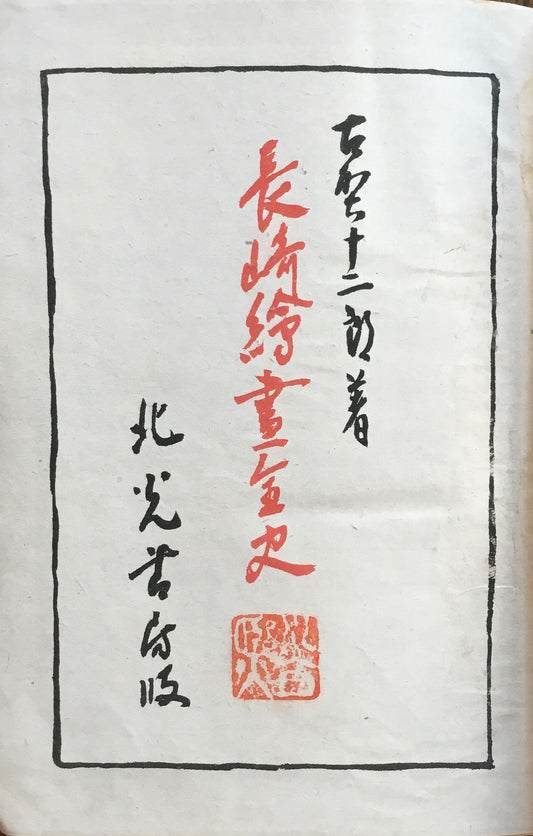 古賀十二郎著
長崎繪畫全史
北光書房版